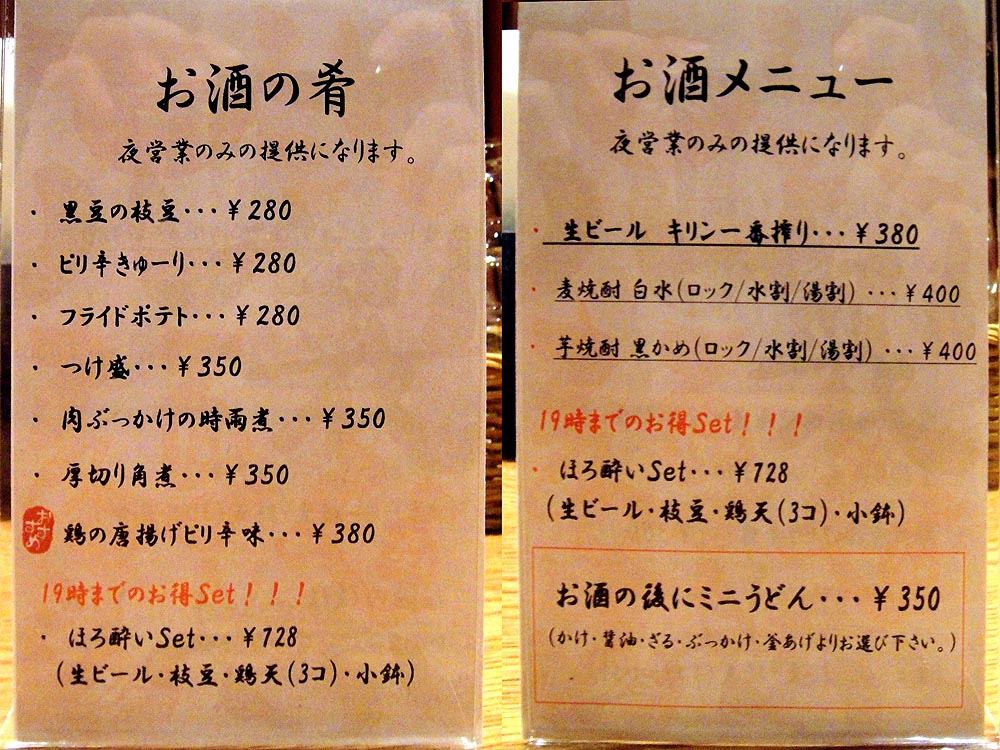 お酒の肴
夜営業のみの提供になります。
・黒豆の枝豆・・・￥280
・ピリ辛きゅーり・・・￥280
・フライドポテト・・・￥280
・つけ盛・・・￥350
・肉ぶっかけの時雨煮・・・￥350
・厚切り角煮・・・￥350
おすすめ 鶏の唐揚げピリ辛味・・・￥380
19時までのお得Set！！！
・ほろ酔いSet・・・￥728
(生ビール・枝豆・鶏天(3コ)・小鉢)
お酒メニュー
夜営業のみの提供になります。
・生ビール キリン一番搾り・・・￥380
・麦焼酎 白水(ロック/水割/湯割) ・・・￥400
・芋焼酎 黒かめ(ロック/水割/湯割) ・・・￥400
19時までのお得Set！！！
・ほろ酔いSet・・・￥728
(生ビール・枝豆・鶏天(3コ)・小鉢)
お酒の後にミニうどん・・・￥350
(かけ・醤油・ざる・ぶっかけ・釜あげよりお選び下さい。)